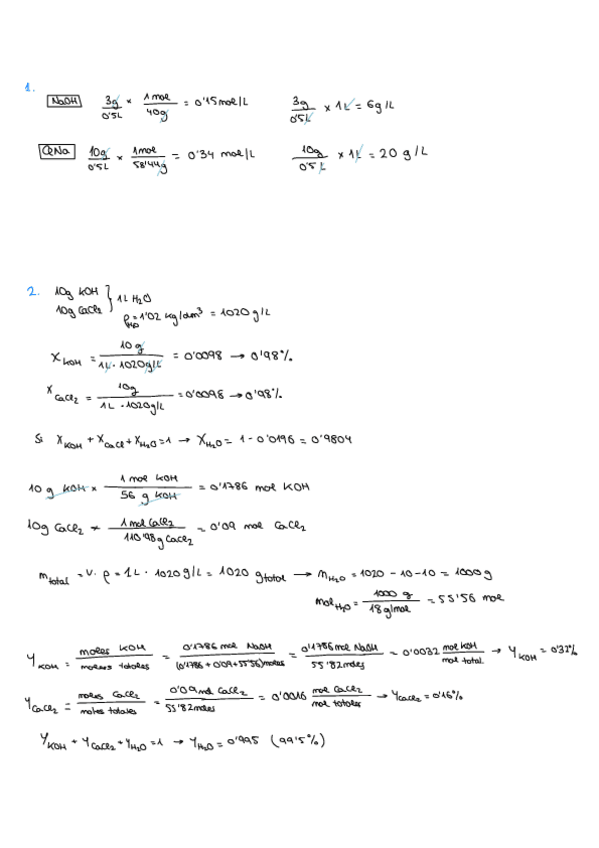 1.
NaOH 3g/0'5L × 1mol/40g = 0'15mol/L 3g/0'5L × 1L = 6g/L
ClNa 10g/0'5L × 1mol/58'44g = 0'34 mol/L 10g/0'5L × 1L = 20 g/L
2. 10g KOH
10g CaCl₂ } 1L H₂O
ρ = 1'02 kg/dm³ = 1020 g/L
X_KOH = 10g/(1L · 1020g/L) = 0'0098 → 0'98%
X_CaCl₂ = 10g/(1L · 1020g/L) = 0'0098 → 0'98%
Si X_KOH + X_CaCl + X_H₂O = 1 → X_H₂O = 1 - 0'0196 = 0'9804
10 g KOH × 1 mol KOH/56 g KOH = 0'1786 mol KOH
10g CaCl₂ × 1 mol CaCl₂/110'98g CaCl₂ = 0'09 mol CaCl₂
m_total = V · ρ = 1L · 1020 g/L = 1020 g total → m_H₂O = 1020 - 10 - 10 = 1000g
mol_H₂O = 1000 g/18g/mol = 55'56 mol
Y_KOH = moles KOH/moles totales = 0'1786 mol NaOH/(0'1786 + 0'09 + 55'56)moles = 0'1786 mol NaOH/55'82moles = 0'0032 mol KOH/mol total → Y_KOH = 0'32%
Y_CaCl₂ = moles CaCl₂/moles totales = 0'09 mol CaCl₂/55'82moles = 0'0016 mol CaCl₂/mol totales → Y_CaCl₂ = 0'16%
Y_KOH + Y_CaCl₂ + Y_H₂O = 1 → Y_H₂O = 0'995 (99'5%)